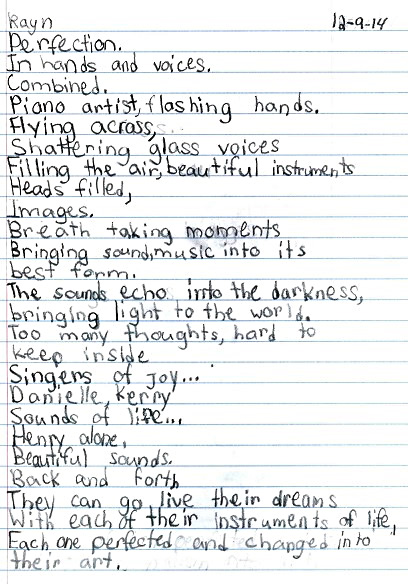 Rayn 12-9-14
Perfection.
In hands and voices.
Combined.
Piano artist, flashing hands.
Flying across,..
Shattering glass voices
Filling the air, beautiful instruments
Heads filled,
Images.
Breath taking moments
Bringing sound, music into its
best form.
The sounds echo into the darkness,
bringing light to the world.
Too many thoughts, hard to
keep inside
Singers of joy...
Danielle, Kerry
Sounds of life...
Henry alone.
Beautiful sounds.
Back and forth
They can go live their dreams
With each of their instruments of life,
Each one perfected and changed into
their art.